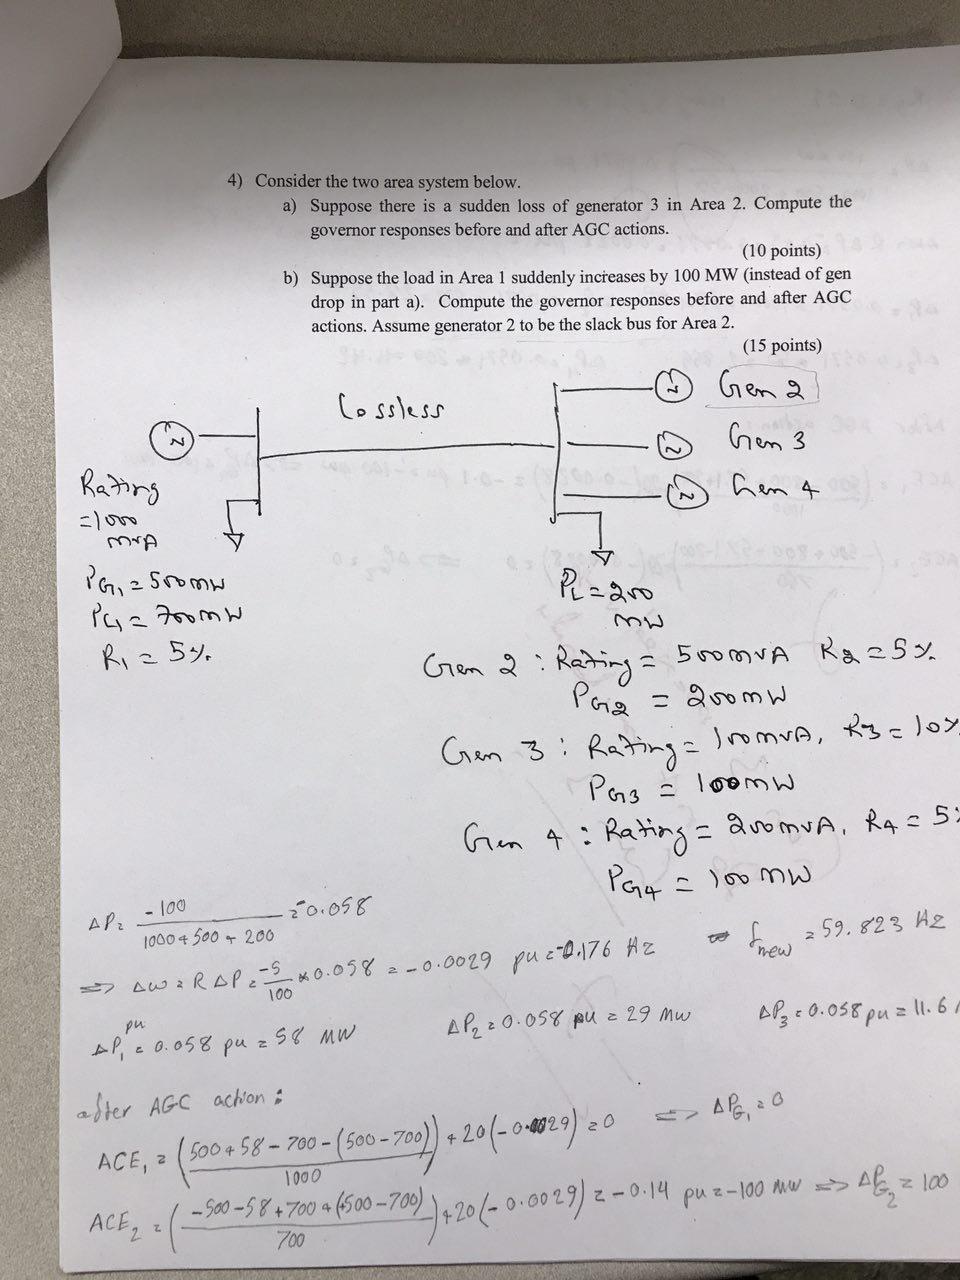 4) Consider the two area system below.
a) Suppose there is a sudden loss of generator 3 in Area 2. Compute the
governor responses before and after AGC actions.
(10 points)
b) Suppose the load in Area 1 suddenly increases by 100 MW (instead of gen
drop in part a). Compute the governor responses before and after AGC
actions. Assume generator 2 to be the slack bus for Area 2.
(15 points)
Lossless
Gen 2
Gen 3
Gen 4
Rating
=1000
MVA
PG1 = 500MW
PL1 = 700MW
R1 = 5%
PL = 200
MW
Gen 2 : Rating = 500MVA R2 = 5%
PG2 = 200MW
Gen 3 : Rating = 100MVA, R3 = 10%
PG3 = 100MW
Gen 4 : Rating = 200MVA, R4 = 5%
PG4 = 100 MW
ΔP = -100 / 1000 + 500 + 200 = 0.058
⇒ Δω = R ΔP = -5/100 × 0.058 = -0.0029 pu = -0.176 Hz ⇒ fnew = 59.823 Hz
pu
ΔP1 = 0.058 pu = 58 MW ΔP2 = 0.058 pu = 29 MW ΔP3 = 0.058 pu = 11.6
after AGC action :
ACE1 = (500 + 58 - 700 - (500 - 700) / 1000) + 20(-0.0029) = 0 ⇒ ΔPG1 = 0
ACE2 = (-500 - 58 + 700 + (500 - 700) / 700) + 20(-0.0029) = -0.14 pu = -100 MW ⇒ ΔPG2 = 100